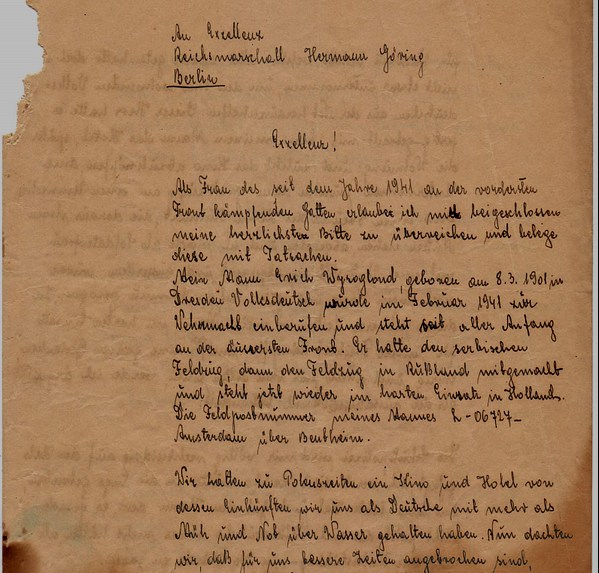 An Exelleux
Reichsmarschall Hermann Göring
Berlin
Exelleur!
Als Frau des seit dem Jahre 1941 an der vordersten
Front kämpfenden Gatten, erlaube ich mit beigeschlossen
meine herzlichsten Bitte zu überreichen und belege
diese mit Tatsachen.
Mein Mann Erich Wyroglond, geboren am 8.3.1901 in
Dresden Volksdeutsch wurde im Februar 1941 zür
Wehrmacht einberufen und steht seit aller Anfang
an der äussersten Front. Er hatte den serbischen
Feldzüg, dann den Feldzüg in Rußland mitgemacht
und steht jetzt wieder im harten Einsatz in Holland.
Die Feldpostnummer meines Mannes L-06727-
Amsterdam über Bentheim.
Wir hatten zu Polenszeiten ein Kino und Hotel von
dessen Einkünften wir uns als Deutsche mit mehr als
Müh und Not über Wasser gehalten haben. Nun dachten
wir, daß für uns bessere Zeiten angebrochen sind,